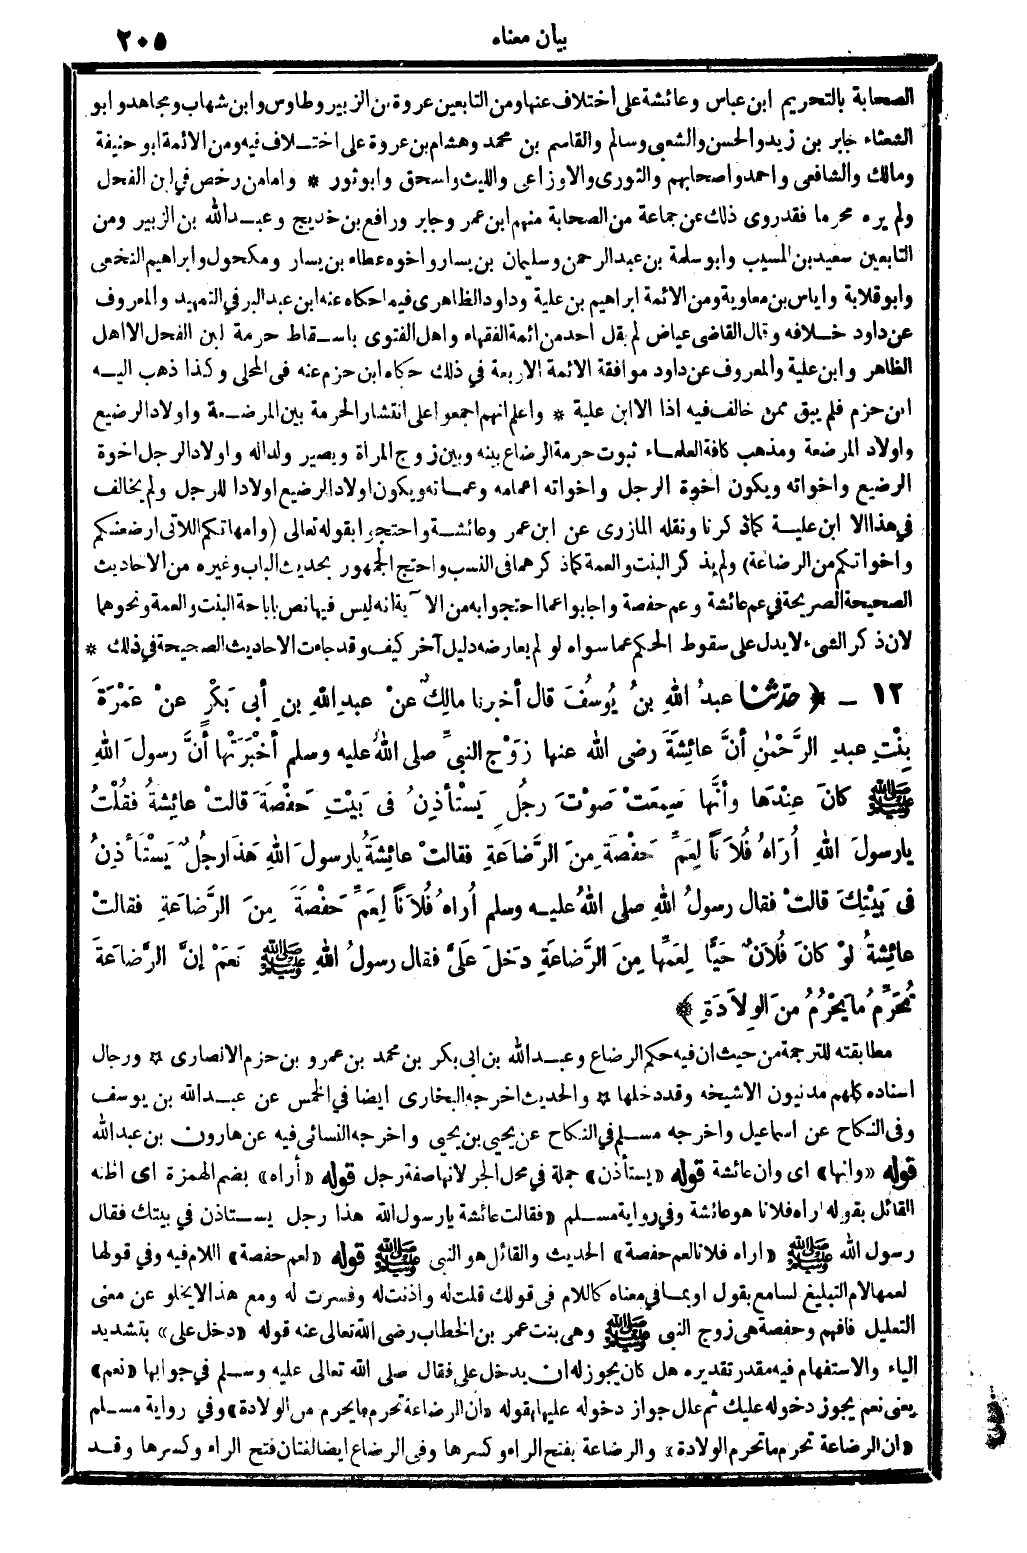 بيان معناه ٢٠٥
الصحابة بالتحريم ابن عباس وعائشة على أختلاف عنها ومن التابعين عروة بن الزبير وطاوس وابن شهاب ومجاهد وابو
الشعثاء جابر بن زيد والحسن والشعبى وسالم والقاسم بن محمد وهشام بن عروة على اختلاف فيه ومن الائمة ابو حنيفة
ومالك والشافعى واحمد واصحابهم والثورى والاوزاعى والليث واسحق وابو ثور * واما من رخص في لبن الفحل
ولم يره محرما فقد روى ذلك عن جماعة من الصحابة منهم ابن عمر وجابر ورافع بن خديج وعبد الله بن الزبير ومن
التابعين سعيد بن المسيب وابو سلمة بن عبد الرحمن وسليمان بن يسار واخوه عطاء بن يسار ومكحول وابراهيم النخعى
وابو قلابة واياس بن معاوية ومن الائمة ابراهيم بن علية وداود الظاهرى فيما حكاه عنه ابن عبد البر في التمهيد والمعروف
عن داود خلافه وقال القاضى عياض لم يقل احد من ائمة الفقهاء واهل الفتوى باسقاط حرمة لبن الفحل الا اهل
الظاهر وابن علية والمعروف عن داود موافقة الائمة الاربعة في ذلك حكاه ابن حزم عنه فى المحلى وكذا ذهب اليه
ابن حزم فلم يبق ممن خالف فيه اذا الا ابن علية * واعلم انهم اجمعوا على انتشار الحرمة بين المرضعة واولاد الرضيع
واولاد المرضعة ومذهب كافة العلماء ثبوت حرمة الرضاع بينه وبين زوج المرأة ويصير ولدا له واولاد الرجل اخوة
الرضيع واخواته ويكون اخوة الرجل واخواته اعمامه وعماته ويكون اولاد الرضيع اولادا للرجل ولم يخالف
في هذا الا ابن علية كما ذكرنا ونقله المازرى عن ابن عمر وعائشة واحتجوا بقوله تعالى (وامهاتكم اللاتى ارضعنكم
واخواتكم من الرضاعة) ولم يذكر البنت والعمة كما ذكرهما فى النسب واحتج الجمهور بحديث الباب وغيره من الاحاديث
الصحيحة الصريحة في عم عائشة وعم حفصة واجابوا عما احتجوا به من الآية انه ليس فيها نص باباحة البنت والعمة ونحوهما
لان ذكر الشىء لا يدل على سقوط الحكم عما سواه لو لم يعارضه دليل آخر كيف وقد جاءت الاحاديث الصحيحة في ذلك *
١٢ - ﴿ حدّثنا عبدُ اللهِ بنُ يُوسُفَ قال أخبرنا مالكٌ عنْ عبدِ اللهِ بنِ أبى بَكْرٍ عنْ عَمْرَةَ
بِنْتِ عبدِ الرَّحْمٰنِ أنَّ عائِشَةَ رضى الله عنها زَوْجَ النبىِّ صلى اللهُ عليه وسلم أخْبَرَتْها أنَّ رسولَ اللهِ
ﷺ كانَ عِنْدَها وأنَّها سَمِعَتْ صَوْتَ رجُلٍ يَسْتأذِنُ فى بَيْتِ حَفْصَةَ قالتْ عائِشةُ فقُلْتُ
يا رسولَ اللهِ أُرَاهُ فُلاَناً لِعَمِّ حَفْصَةَ مِنَ الرَّضاعَةِ فقالتْ عائِشَةُ يا رسولَ اللهِ هَذَا رجُلٌ يَسْتَأذِنُ
فى بَيْتِكَ قالتْ فقال رسولُ اللهِ صلى اللهُ عليه وسلم أُراهُ فُلاَناً لِعَمِّ حَفْصَةَ مِنَ الرَّضاعَةِ فقالتْ
عائِشةُ لوْ كانَ فُلاَنٌ حَيًّا لِعَمِّها مِنَ الرَّضاعَةِ دَخَلَ عَلَىَّ فقال رسولُ اللهِ ﷺ نَعَمْ إنَّ الرَّضاعَةَ
تُحَرِّمُ ما يَحْرُمُ مِنَ الوِلاَدَةِ ﴾
مطابقته للترجمة من حيث ان فيه حكم الرضاع وعبد الله بن ابى بكر بن محمد بن عمرو بن حزم الانصارى * ورجال
اسناده كلهم مدنيون الا شيخه وقد دخلها * والحديث اخرجه البخارى ايضا في الخمس عن عبد الله بن يوسف
وفى النكاح عن اسماعيل واخرجه مسلم في النكاح عن يحيى بن يحيى واخرجه النسائى فيه عن هارون بن عبد الله
قوله «وانها» اى وان عائشة قوله «يستأذن» جملة في محل الجر لانها صفة رجل قوله «أراه» بضم الهمزة اى اظنه
القائل بقوله اراه فلانا هو عائشة وفي رواية مسلم «فقالت عائشة يا رسول الله هذا رجل يستاذن في بيتك فقال
رسول الله ﷺ «اراه فلانا لعم حفصة» الحديث والقائل هو النبى ﷺ قوله «لعم حفصة» اللام فيه وفي قولها
لعمها لام التبليغ لسامع بقول او بما في معناه كاللام فى قولك قلت له واذنت له وفسرت له ومع هذا لا يخلو عن معنى
التعليل فافهم وحفصة هى زوج النبى ﷺ وهى بنت عمر بن الخطاب رضى الله تعالى عنه قوله «دخل على» بتشديد
الياء والاستفهام فيه مقدر تقديره هل كان يجوز له ان يدخل على فقال صلى الله تعالى عليه وسلم في جوابها «نعم»
يعنى نعم يجوز دخوله عليك ثم علل جواز دخوله عليها بقوله «ان الرضاعة تحرم ما يحرم من الولادة» وفي رواية مسلم
«ان الرضاعة تحرم ما تحرم الولادة» والرضاعة بفتح الراء وكسرها وفى الرضاع ايضا لغتان فتح الراء وكسرها وقد